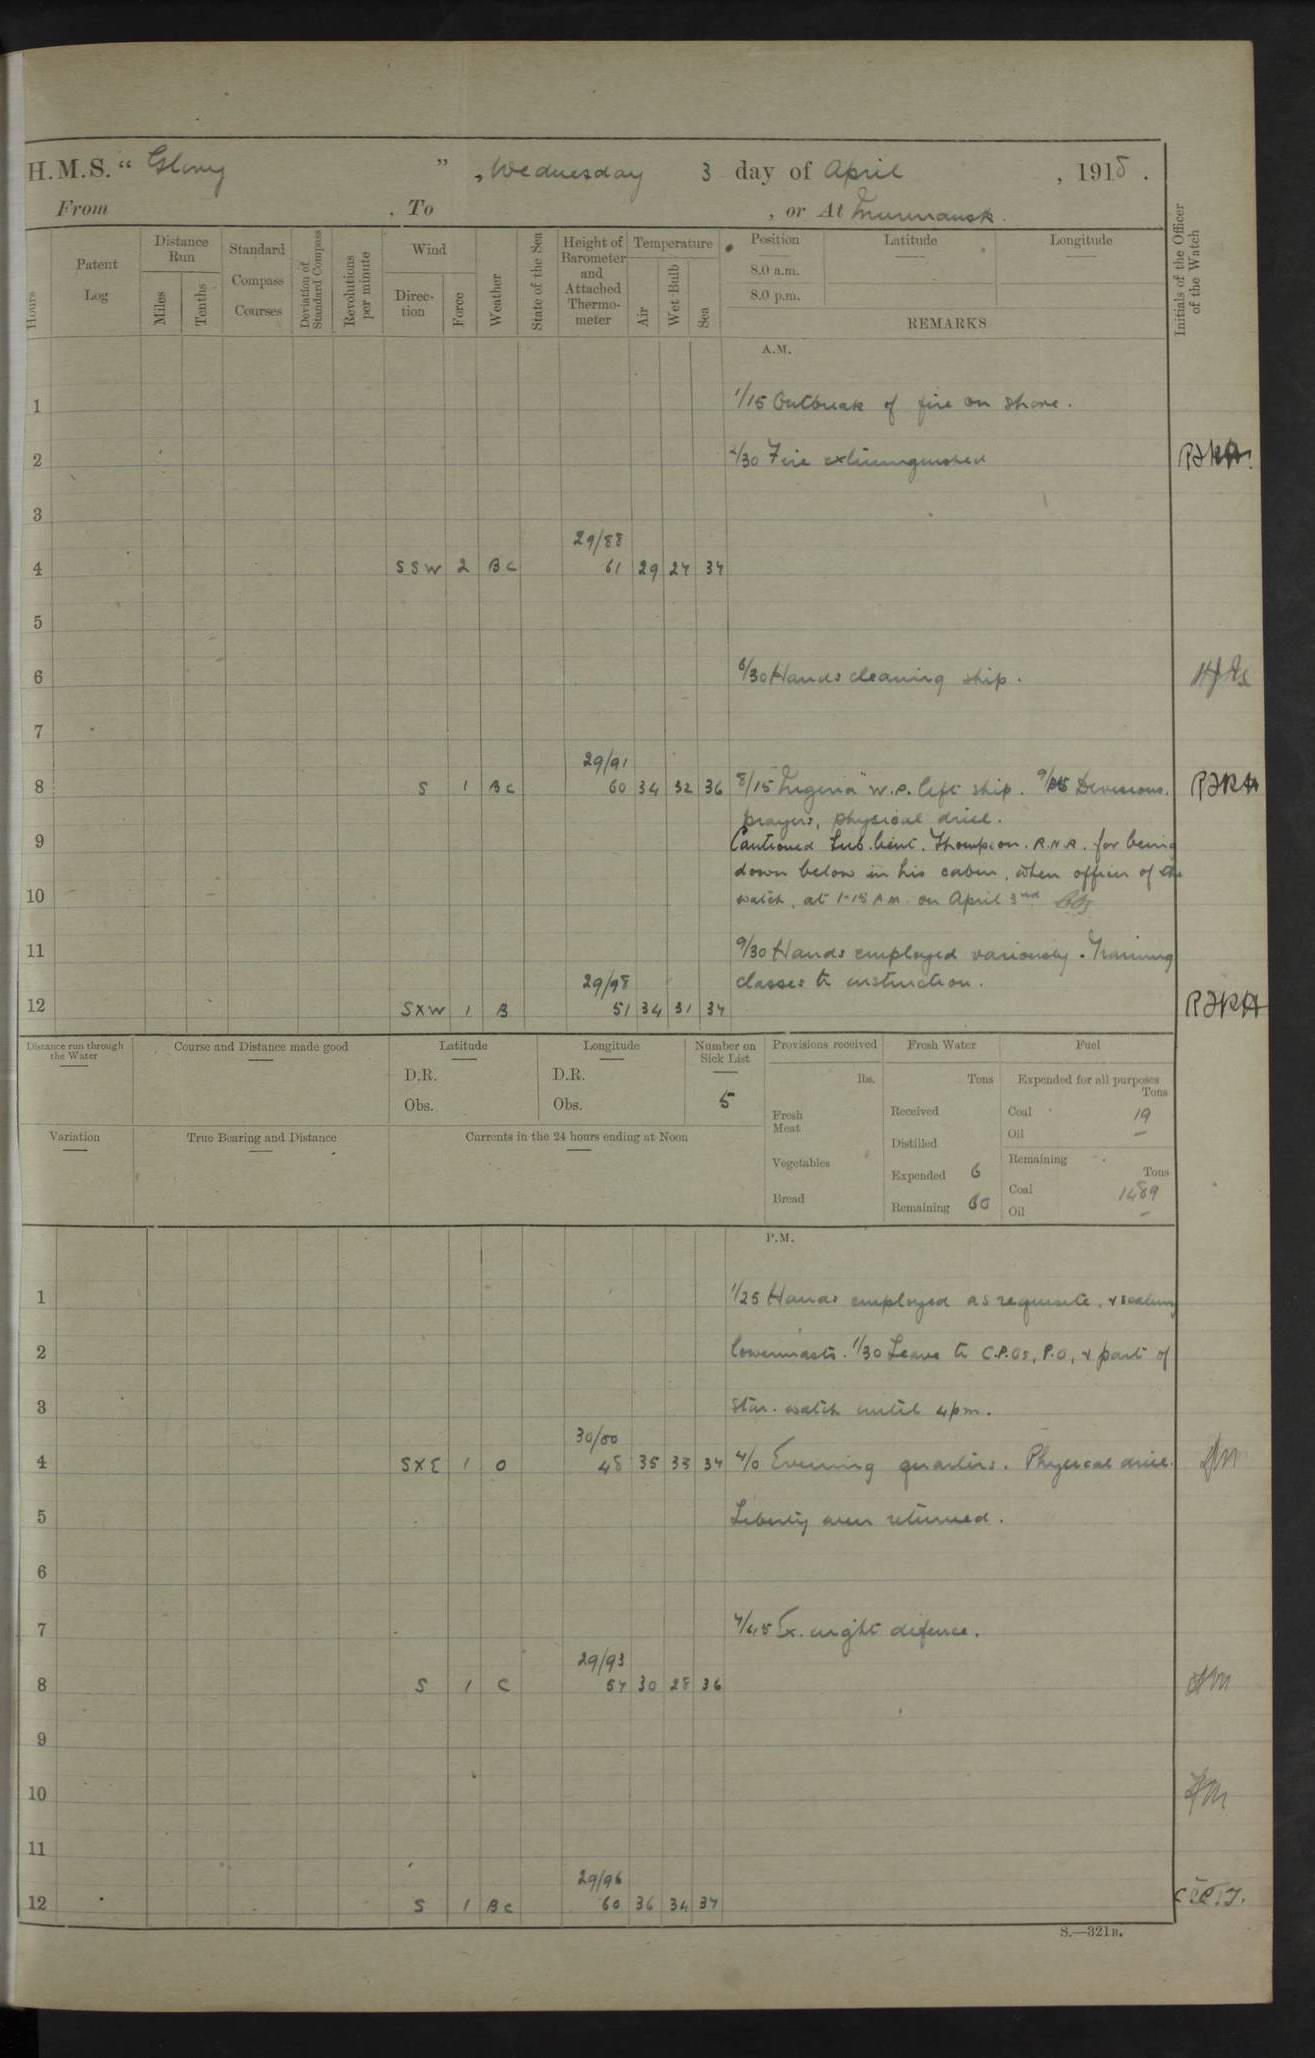 H.M.S. “ Glory ” , Wednesday 3 day of April , 1918 .
From , To , or At Murmansk.
Hours
Patent Log
Distance Run
Miles
Tenths
Standard Compass Courses
Deviation of Standard Compass
Revolutions per minute
Wind
Direc-tion
Force
Weather
State of the Sea
Height of Barometer and Attached Thermo-meter
Temperature
Air
Wet Bulb
Sea
Position
8.0 a.m.
8.0 p.m.
Latitude
Longitude
REMARKS
Initials of the Officer of the Watch
A.M.
1 1/15 Outbreak of fire on shore.
2 2/30 Fire extinguished
3
29/88
4 SSW 2 BC 61 29 27 37
5
6 6/30 Hands cleaning ship.
7
29/91
8 S 1 BC 60 34 32 36 8/15 W.P. left ship. Divisions,
prayers, physical drill.
9 Cautioned Sub. Lieut. Thompson. R.N.R. for being
down below in his cabin, when officer of the
10 watch, at 1-15 AM. on April 3rd
11 9/30 Hands employed variously. Training
29/98 classes to instruction.
12 SXW 1 B 51 34 31 37
Distance run through the Water
Course and Distance made good
Latitude
D.R.
Obs.
Longitude
D.R.
Obs.
Number on Sick List
5
Provisions received
lbs.
Fresh Meat
Vegetables
Bread
Fresh Water
Tons
Received
Distilled
Expended 6
Remaining 60
Fuel
Expended for all purposes
Tons
Coal 19
Oil —
Remaining
Tons
Coal 1489
Oil —
Variation
True Bearing and Distance
Currents in the 24 hours ending at Noon
P.M.
1 1/25 Hands employed as requisite, &
2 lowermasts. 1/30 Leave to C.P.Os, P.O, & part of
3 star. watch until 4pm.
30/00
4 SXE 1 O 48 35 33 37 4/0 Evening quarters. Physical drill.
5 Liberty men returned.
6
7 7/45 Ex. night defence.
29/93
8 S 1 C 57 30 28 36
9
10
11
29/96
12 S 1 BC 60 36 34 37
S.—321B.